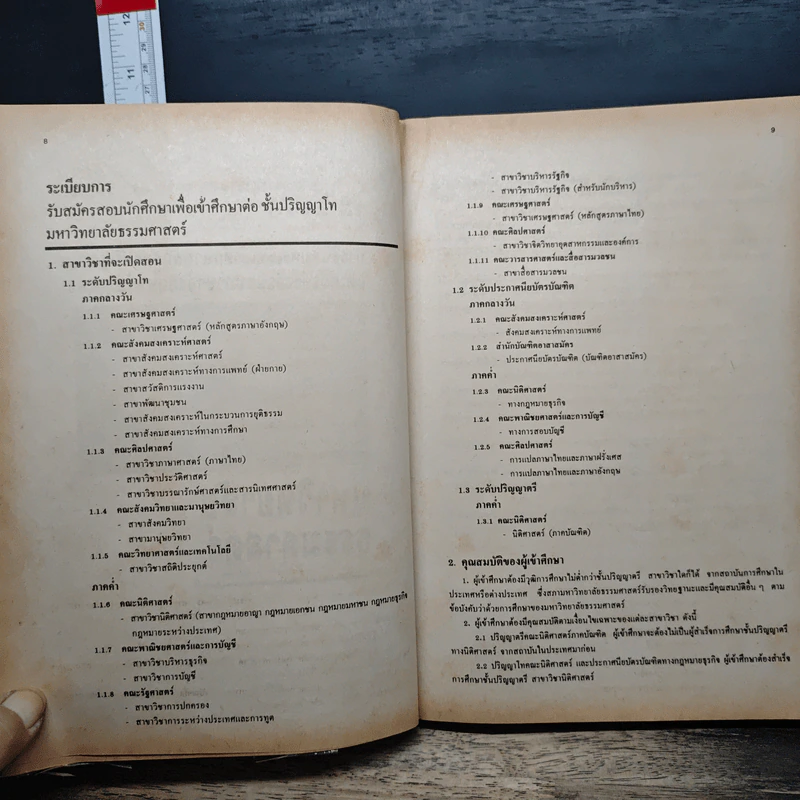 12
30
29
28
11
8
ระเบียบการ
รับสมัครสอบนักศึกษาเพื่อเข้าศึกษาต่อ ชั้นปริญญาโท
มหาวิทยาลัยธรรมศาสตร์
1. สาขาวิชาที่จะเปิดสอน
1.1 ระดับปริญญาโท
ภาคกลางวัน
1.1.1 คณะเศรษฐศาสตร์
- สาขาวิชาเศรษฐศาสตร์ (หลักสูตรภาษาอังกฤษ)
1.1.2 คณะสังคมสงเคราะห์ศาสตร์
- สาขาสังคมสงเคราะห์ศาสตร์
- สาขาสังคมสงเคราะห์ทางการแพทย์ (ฝ่ายกาย)
- สาขาสวัสดิการแรงงาน
- สาขาพัฒนาชุมชน
- สาขาสังคมสงเคราะห์ในกระบวนการยุติธรรม
- สาขาสังคมสงเคราะห์ทางการศึกษา
1.1.3 คณะศิลปศาสตร์
- สาขาวิชาภาษาศาสตร์ (ภาษาไทย)
- สาขาวิชาประวัติศาสตร์
- สาขาวิชาบรรณารักษ์ศาสตร์และสารนิเทศศาสตร์
1.1.4 คณะสังคมวิทยาและมานุษยวิทยา
- สาขาสังคมวิทยา
- สาขามานุษยวิทยา
1.1.5 คณะวิทยาศาสตร์และเทคโนโลยี
- สาขาวิชาสถิติประยุกต์
ภาคค่ำ
1.1.6 คณะนิติศาสตร์
- สาขาวิชานิติศาสตร์ (สาขากฎหมายอาญา กฎหมายเอกชน กฎหมายมหาชน กฎหมายธุรกิจ
กฎหมายระหว่างประเทศ)
1.1.7 คณะพาณิชยศาสตร์และการบัญชี
- สาขาวิชาบริหารธุรกิจ
- สาขาวิชาการบัญชี
1.1.8 คณะรัฐศาสตร์
- สาขาวิชาการปกครอง
- สาขาวิชาการระหว่างประเทศและการทูต
9
- สาขาวิชาบริหารรัฐกิจ
- สาขาวิชาบริหารรัฐกิจ (สำหรับนักบริหาร)
1.1.9 คณะเศรษฐศาสตร์
- สาขาวิชาเศรษฐศาสตร์ (หลักสูตรภาษาไทย)
1.1.10 คณะศิลปศาสตร์
- สาขาวิชาจิตวิทยาอุตสาหกรรมและองค์การ
1.1.11 คณะวารสารศาสตร์และสื่อสารมวลชน
- สาขาสื่อสารมวลชน
1.2 ระดับประกาศนียบัตรบัณฑิต
ภาคกลางวัน
1.2.1 คณะสังคมสงเคราะห์ศาสตร์
- สังคมสงเคราะห์ทางการแพทย์
1.2.2 สำนักบัณฑิตอาสาสมัคร
- ประกาศนียบัตรบัณฑิต (บัณฑิตอาสาสมัคร)
ภาคค่ำ
1.2.3 คณะนิติศาสตร์
- ทางกฎหมายธุรกิจ
1.2.4 คณะพาณิชยศาสตร์และการบัญชี
- ทางการสอบบัญชี
1.2.5 คณะศิลปศาสตร์
- การแปลภาษาไทยและภาษาฝรั่งเศส
- การแปลภาษาไทยและภาษาอังกฤษ
1.3 ระดับปริญญาตรี
ภาคค่ำ
1.3.1 คณะนิติศาสตร์
- นิติศาสตร์ (ภาคบัณฑิต)
2. คุณสมบัติของผู้เข้าศึกษา
1. ผู้เข้าศึกษาต้องมีวุฒิการศึกษาไม่ต่ำกว่าชั้นปริญญาตรี สาขาวิชาใดก็ได้ จากสถาบันการศึกษาใน
ประเทศหรือต่างประเทศ ซึ่งสภามหาวิทยาลัยธรรมศาสตร์รับรองวิทยฐานะและมีคุณสมบัติอื่น ๆ ตาม
ข้อบังคับว่าด้วยการศึกษาของมหาวิทยาลัยธรรมศาสตร์
2. ผู้เข้าศึกษาต้องมีคุณสมบัติตามเงื่อนไขเฉพาะของแต่ละสาขาวิชา ดังนี้
2.1 ปริญญาตรีคณะนิติศาสตร์ภาคบัณฑิต ผู้เข้าศึกษาจะต้องไม่เป็นผู้สำเร็จการศึกษาชั้นปริญญาตรี
ทางนิติศาสตร์ จากสถาบันในประเทศมาก่อน
2.2 ปริญญาโทคณะนิติศาสตร์ และประกาศนียบัตรบัณฑิตทางกฎหมายธุรกิจ ผู้เข้าศึกษาต้องสำเร็จ
การศึกษาชั้นปริญญาตรี สาขาวิชานิติศาสตร์